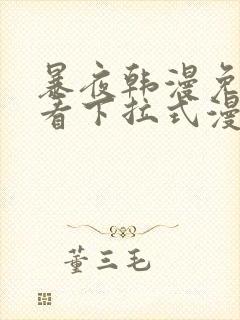 暴夜韩漫免
看下拉式漫
董三毛